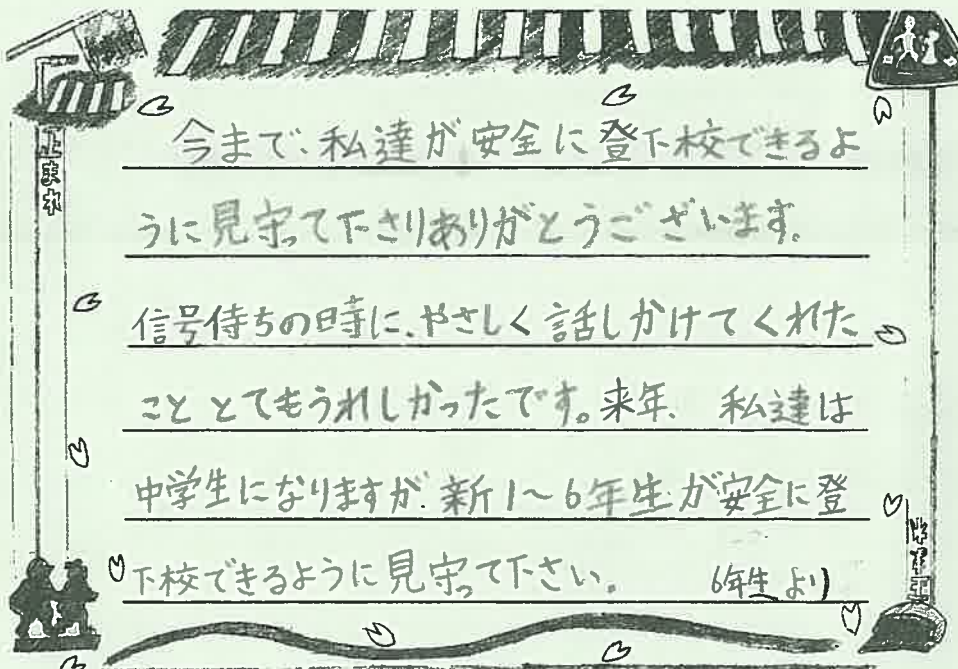 止まれ
今まで、私達が安全に登下校できるよ
うに見守って下さりありがとうございます。
信号待ちの時に、やさしく話しかけてくれた
こととてもうれしかったです。来年、私達は
中学生になりますが、新1〜6年生が安全に登
下校できるように見守って下さい。 6年生より